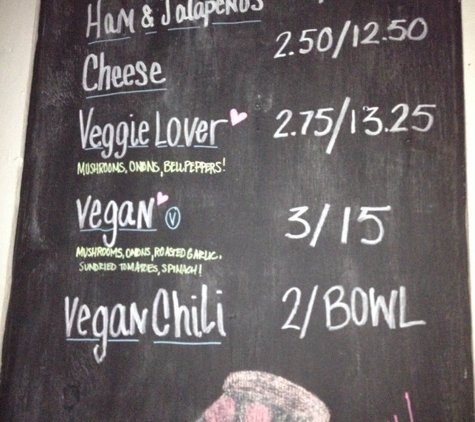 Ham & Jalapeños
Cheese 2.50/12.50
Veggie Lover 2.75/13.25
MUSHROOMS, ONIONS, BELLPEPPERS!
Vegan V 3/15
MUSHROOMS, ONIONS, ROASTED GARLIC.
SUNDRIED TOMATOES, SPINACH!
Vegan Chili 2/BOWL